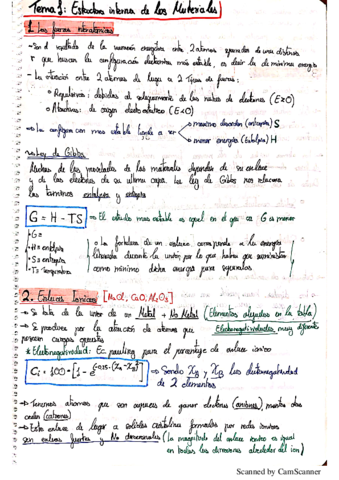 Tema 1: Estructura interna de los Materiales
1. Las fuerzas interatómicas
- Son el resultado de la interacción energética entre 2 átomos separados de una distancia
r que buscan la configuración electrónica más estable, es decir la de mínima energía
- La atracción entre 2 átomos da lugar a 2 tipos de fuerzas:
Repulsivas: debidas al solapamiento de las nubes de electrones (E>0)
Atractivas: de origen electrostático (E<0)
- La configuración más estable tiende a ser
máximo desorden (entropía) S
menor energía (entalpía) H
Ley de Gibbs
Muchas de las propiedades de los materiales dependen de su enlace
y de los electrones de su última capa. La ley de Gibbs nos relaciona
los términos entalpía y entropía
G = H - TS
⇒ El estado más estable es aquel en el que G es menor
G =
H = entalpía
S = entropía
T = Temperatura
La fortaleza de un enlace corresponde a la energía
liberada durante la unión, por lo que habrá que suministrar
como mínimo dicha energía para separarlos
2. Enlaces Iónicos [NaCl, CaO, Al2O3]
Se trata de la unión de un Metal + No Metal (Elementos alejados en la tabla)
Se produce por la atracción de átomos que Electronegatividades muy diferentes
poseen cargas opuestas
Electronegatividad: Ec pauling para el porcentaje de enlace iónico
Ci = 100 · [1 - e^(-0.25 · (XA - XB)²)]
⇒ Siendo XB y XA las electronegatividades
de 2 elementos
Tenemos átomos que son capaces de ganar electrones (aniones), mientras otros
ceden (cationes)
Este enlace da lugar a sólidos cristalinos formados por redes iónicas
son enlaces fuertes y No direccionales (la magnitud del enlace iónico es igual
en todas las direcciones alrededor del ion)
Scanned by CamScanner